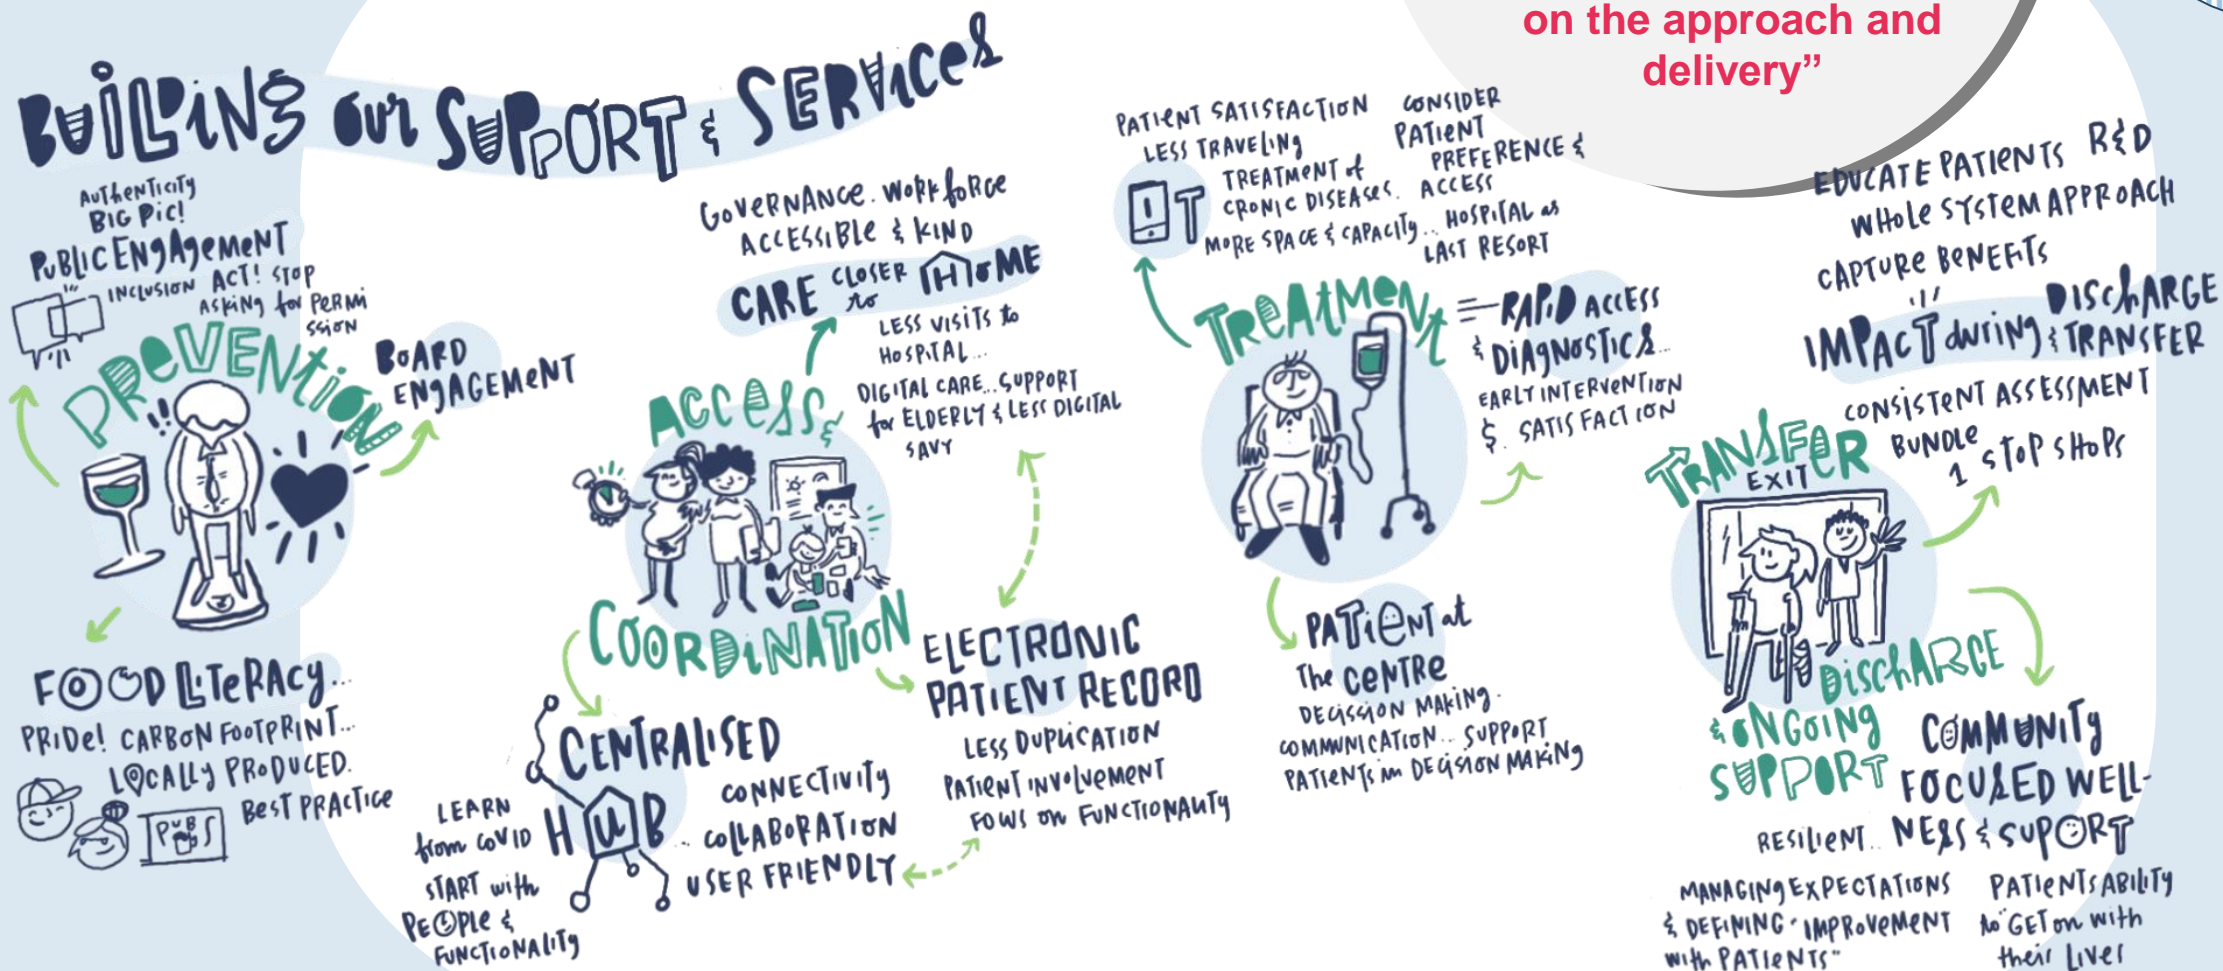 on the approach and
delivery”
BUILDING our SUPPORT & SERVICES
AUTHENTICITY
BIG PIC!
PUBLIC ENGAGEMENT
INCLUSION ACT! STOP
ASKING for PERMI
SSION
PREVENTION
BOARD
ENGAGEMENT
FOOD LITERACY...
PRIDE! CARBON FOOTPRINT...
LOCALLY PRODUCED.
BEST PRACTICE
PUBS
GOVERNANCE. WORKFORCE
ACCESSIBLE & KIND
CARE CLOSER
to HOME
LESS VISITS to
HOSPITAL...
DIGITAL CARE... SUPPORT
for ELDERLY & LESS DIGITAL
SAVY
ACCESS &
COORDINATION
CENTRALISED
HUB
LEARN
from COVID
START with
PEOPLE &
FUNCTIONALITY
CONNECTIVITY
.. COLLABORATION
USER FRIENDLY
ELECTRONIC
PATIENT RECORD
LESS DUPLICATION
PATIENT INVOLVEMENT
FOWS on FUNCTIONALITY
PATIENT SATISFACTION
LESS TRAVELING
IT
TREATMENT of
CRONIC DISEASES.
MORE SPACE & CAPACITY..
CONSIDER
PATIENT
PREFERENCE &
ACCESS
HOSPITAL as
LAST RESORT
TREATMENT
RAPID ACCESS
& DIAGNOSTICS...
EARLY INTERVENTION
&. SATISFACTION
PATIENT at
The CENTRE
DECISSION MAKING.
COMMUNICATION... SUPPORT
PATIENTS in DECISION MAKING
EDUCATE PATIENTS R&D
WHOLE SYSTEM APPROACH
CAPTURE BENEFITS
IMPACT during DISCHARGE
& TRANSFER
CONSISTENT ASSESSMENT
BUNDLE
1 STOP SHOPS
TRANSFER
EXIT
DISCHARGE
& ONGOING
SUPPORT
COMMUNITY
FOCUSED WELL-
RESILIENT.. NESS & SUPORT
MANAGING EXPECTATIONS
& DEFINING "IMPROVEMENT
with PATIENTS"
PATIENTS ABILITY
to "GET on with
their LIVES